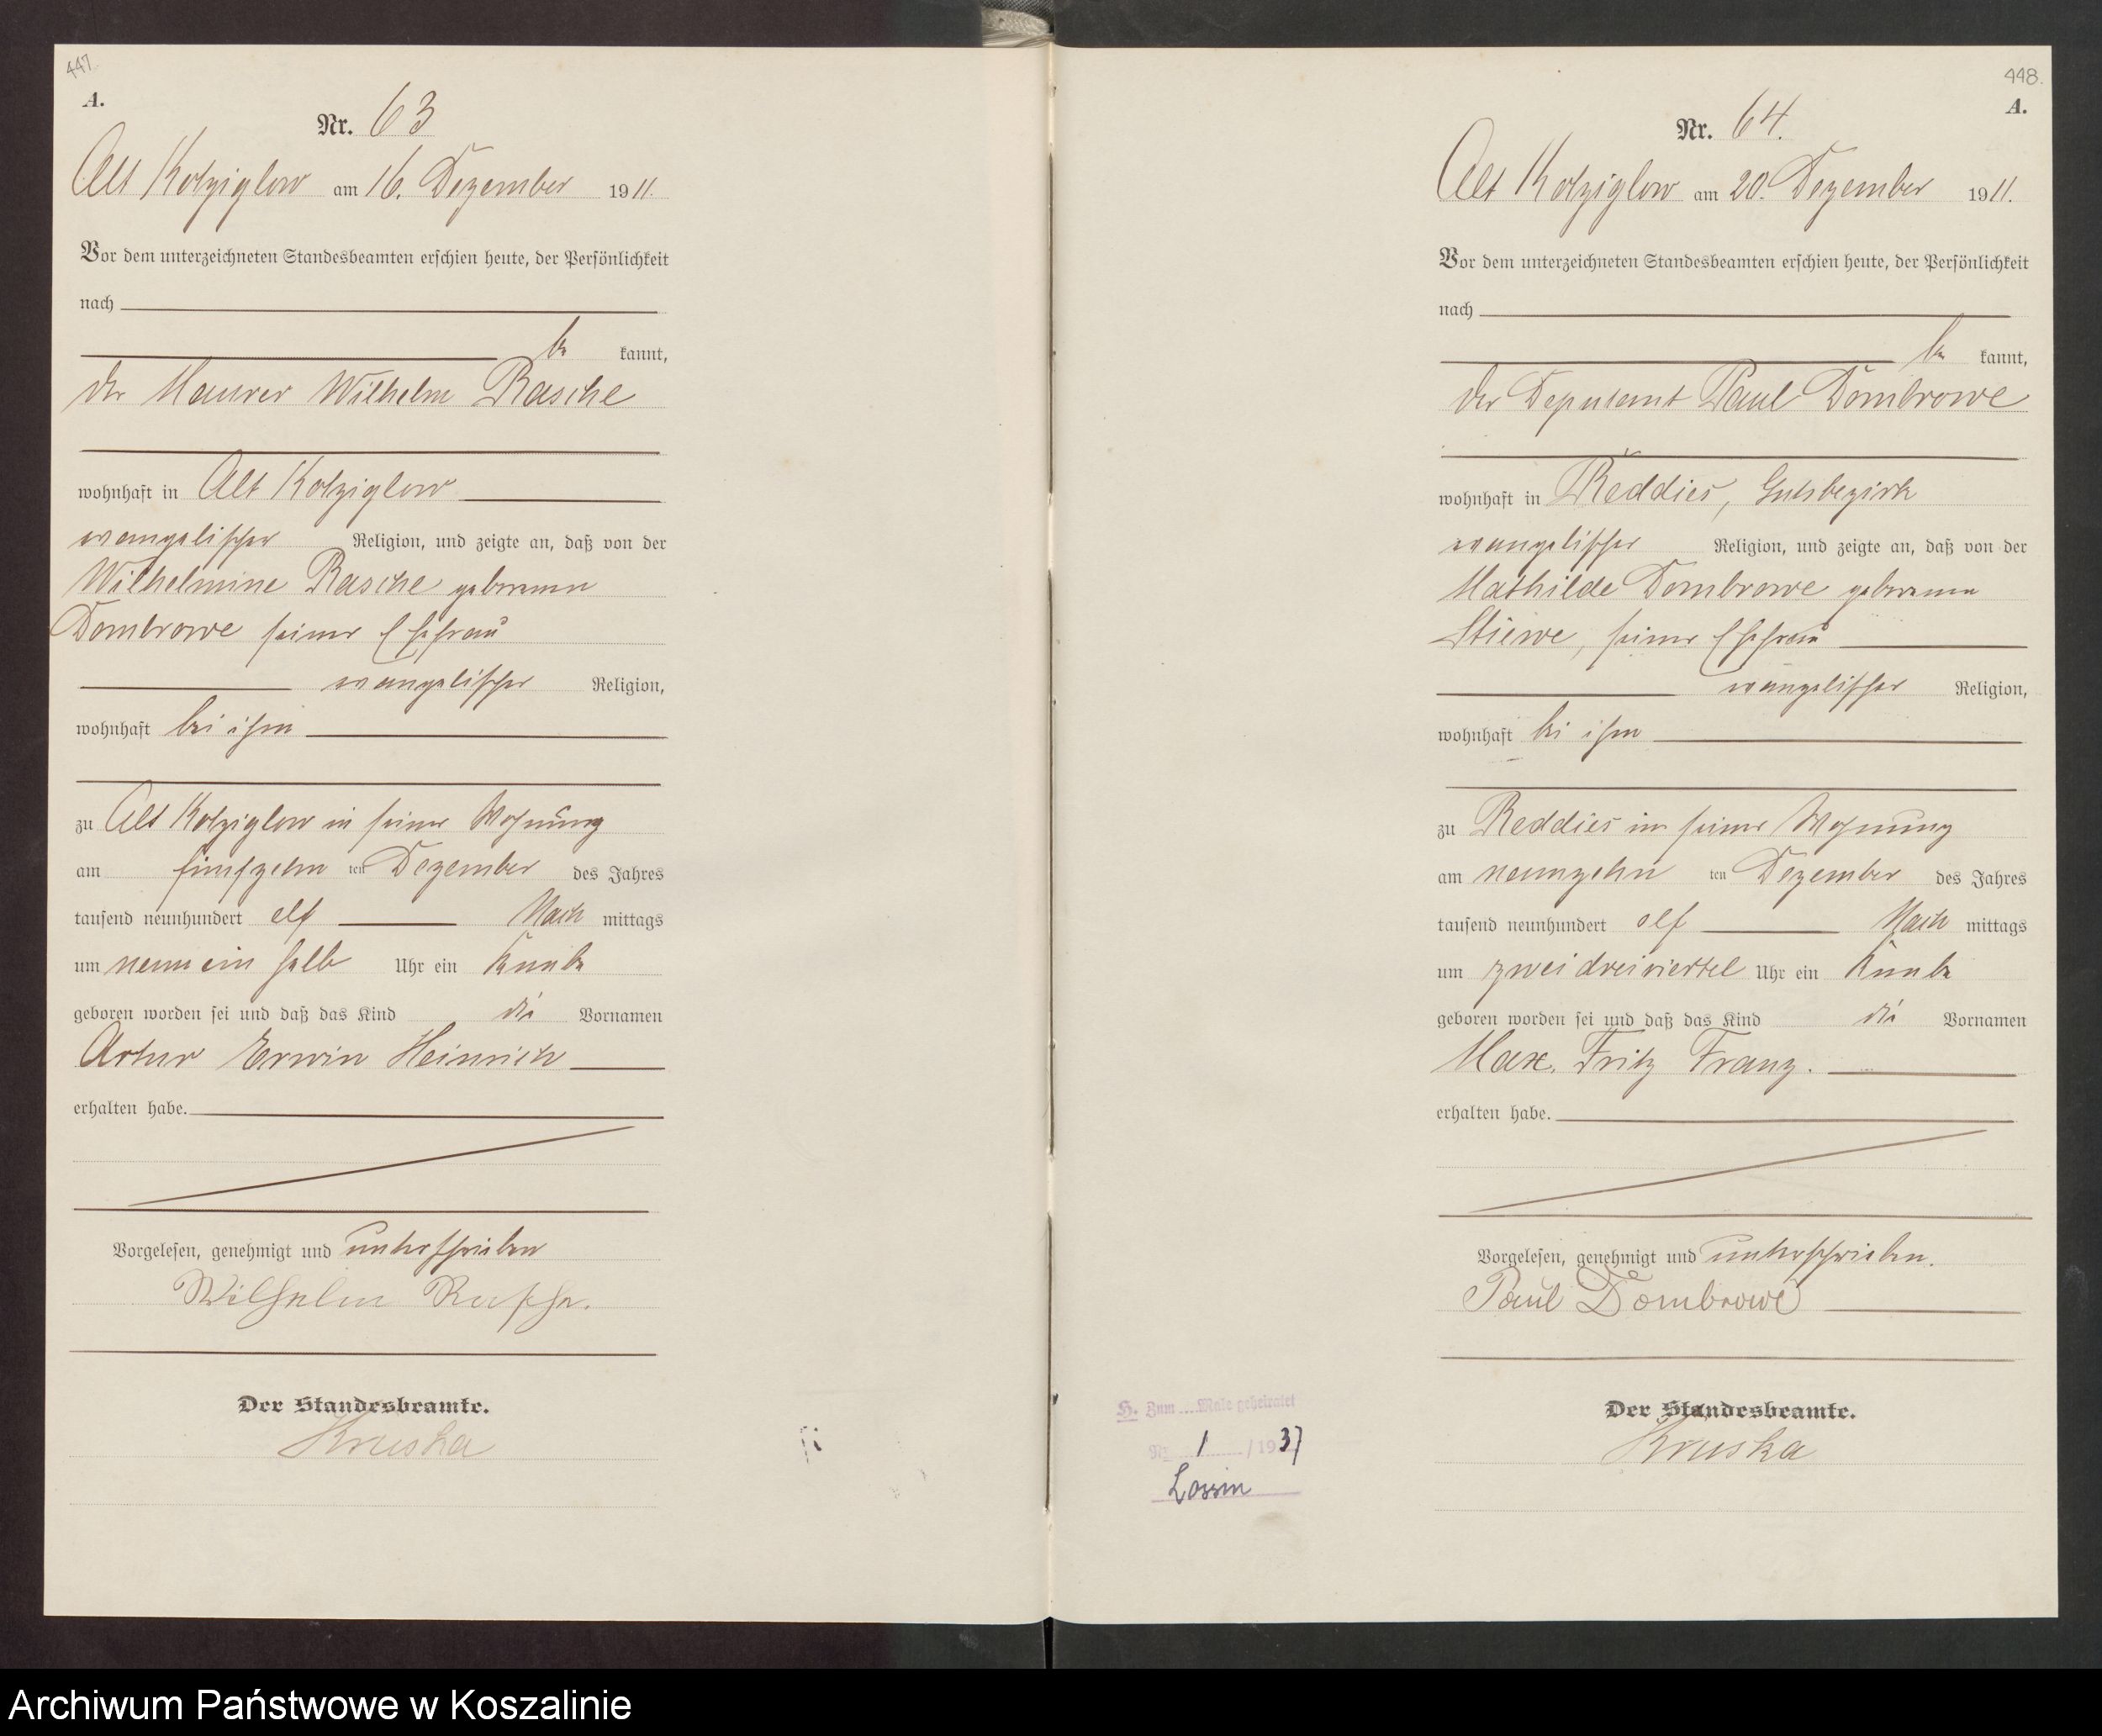 447.
A.
Nr. 63
Alt Kolziglow am 16. Dezember 1911.
Vor dem unterzeichneten Standesbeamten erschien heute, der Persönlichkeit
nach
be kannt,
der Maurer Wilhelm Rasche
wohnhaft in Alt Kolziglow
evangelischer Religion, und zeigte an, daß von der
Wilhelmine Rasche geborenen
Dombrowe seiner Ehefrau
evangelischer Religion,
wohnhaft bei ihm
zu Alt Kolziglow in seiner Wohnung
am fünfzehn ten Dezember des Jahres
tausend neunhundert elf Nach mittags
um neun ein halb Uhr ein Knabe
geboren worden sei und daß das Kind die Vornamen
Artur Erwin Heinrich
erhalten habe.
Vorgelesen, genehmigt und unterschrieben
Wilhelm Rasche.
Der Standesbeamte.
Kruska
448.
A.
Nr. 64.
Alt Kolziglow am 20. Dezember 1911.
Vor dem unterzeichneten Standesbeamten erschien heute, der Persönlichkeit
nach
be kannt,
der Deputant Paul Dombrowe
wohnhaft in Reddies, Gutsbezirk
evangelischer Religion, und zeigte an, daß von der
Mathilde Dombrowe geborenen
Stiewe, seiner Ehefrau
evangelischer Religion,
wohnhaft bei ihm
zu Reddies in seiner Wohnung
am neunzehn ten Dezember des Jahres
tausend neunhundert elf Nach mittags
um zwei dreiviertel Uhr ein Knabe
geboren worden sei und daß das Kind die Vornamen
Max, Fritz Franz.
erhalten habe.
Vorgelesen, genehmigt und unterschrieben.
Paul Dombrowe
Der Standesbeamte.
Kruska
H. Zum ... Male geheiratet
Nr. 1 / 1937
Lossin
Archiwum Państwowe w Koszalinie